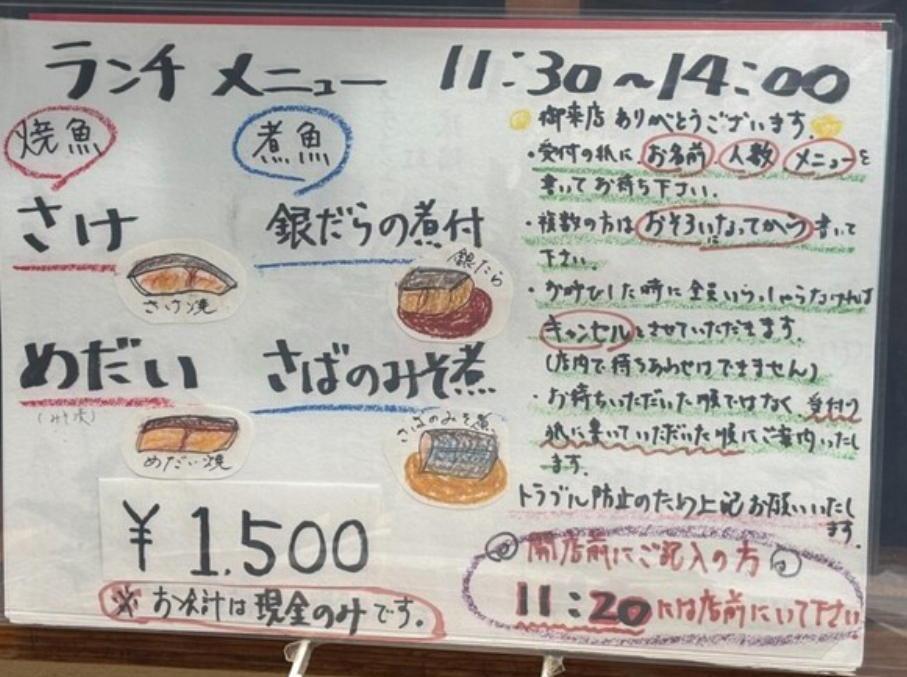 ランチ メニュー 11:30～14:00
焼魚
さけ
さけ焼
めだい
(みそ漬)
めだい焼
煮魚
銀だらの煮付
銀だら
さばのみそ煮
さばのみそ煮
¥1.500
※お会計は現金のみです。
御来店ありがとうございます。
・受付の紙に お名前 人数 メニューを
書いてお待ち下さい。
・複数の方はおそろいになってから書いて
下さい。
・お呼びした時に全員いらっしゃらなければ
キャンセルとさせていただきます。
(店内で待ちあわせはできません)
・お待ちいただいた順ではなく 受付の
紙に書いていただいた順にご案内いたし
ます。
トラブル防止のため上記お願いいたし
ます。
開店前にご記入の方は
11:20には店前にいて下さい